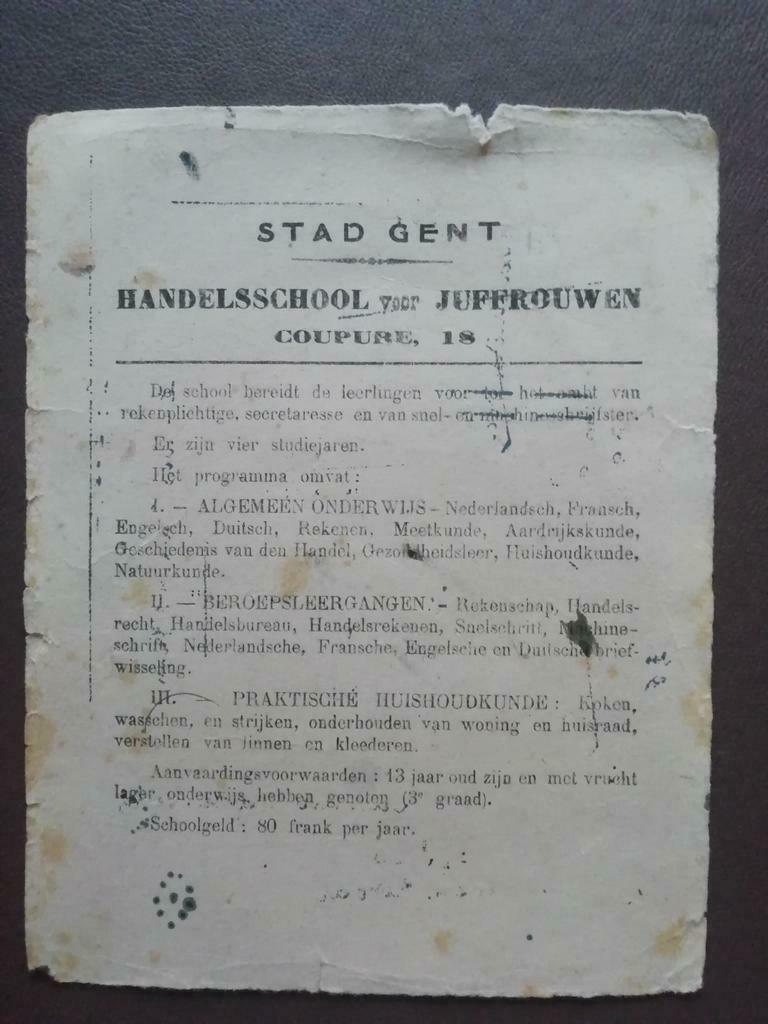 STAD GENT
HANDELSSCHOOL voor JUFFROUWEN
COUPURE, 18
De school bereidt de leerlingen voor tot het ambt van
rekenplichtige, secretaresse en van snel- en machineschrijfster.
Er zijn vier studiejaren.
Het programma omvat :
I. — ALGEMEEN ONDERWIJS - Nederlandsch, Fransch,
Engelsch, Duitsch, Rekenen, Meetkunde, Aardrijkskunde,
Geschiedenis van den Handel, Gezondheidsleer, Huishoudkunde,
Natuurkunde.
II. — BEROEPSLEERGANGEN. - Rekenschap, Handels-
recht, Handelsbureau, Handelsrekenen, Snelschrift, Machine-
schrift, Nederlandsche, Fransche, Engelsche en Duitsche brief-
wisseling.
III. — PRAKTISCHE HUISHOUDKUNDE : Koken,
wasschen, en strijken, onderhouden van woning en huisraad,
verstellen van linnen en kleederen.
Aanvaardingsvoorwaarden : 13 jaar oud zijn en met vrucht
lager onderwijs hebben genoten (3e graad).
Schoolgeld : 80 frank per jaar.